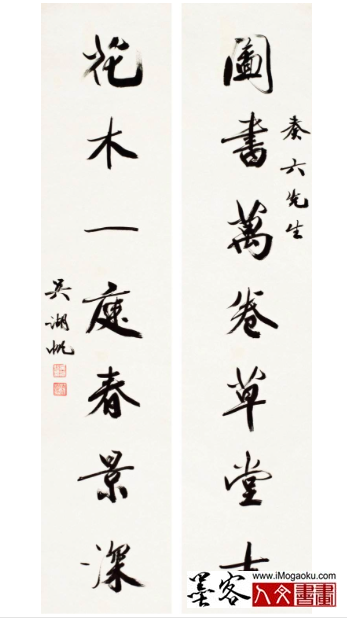 圖書萬卷草堂
奏六先生
花木一庭春景深
吳湖帆
墨客
www.iMogaoku.com
人文書畫